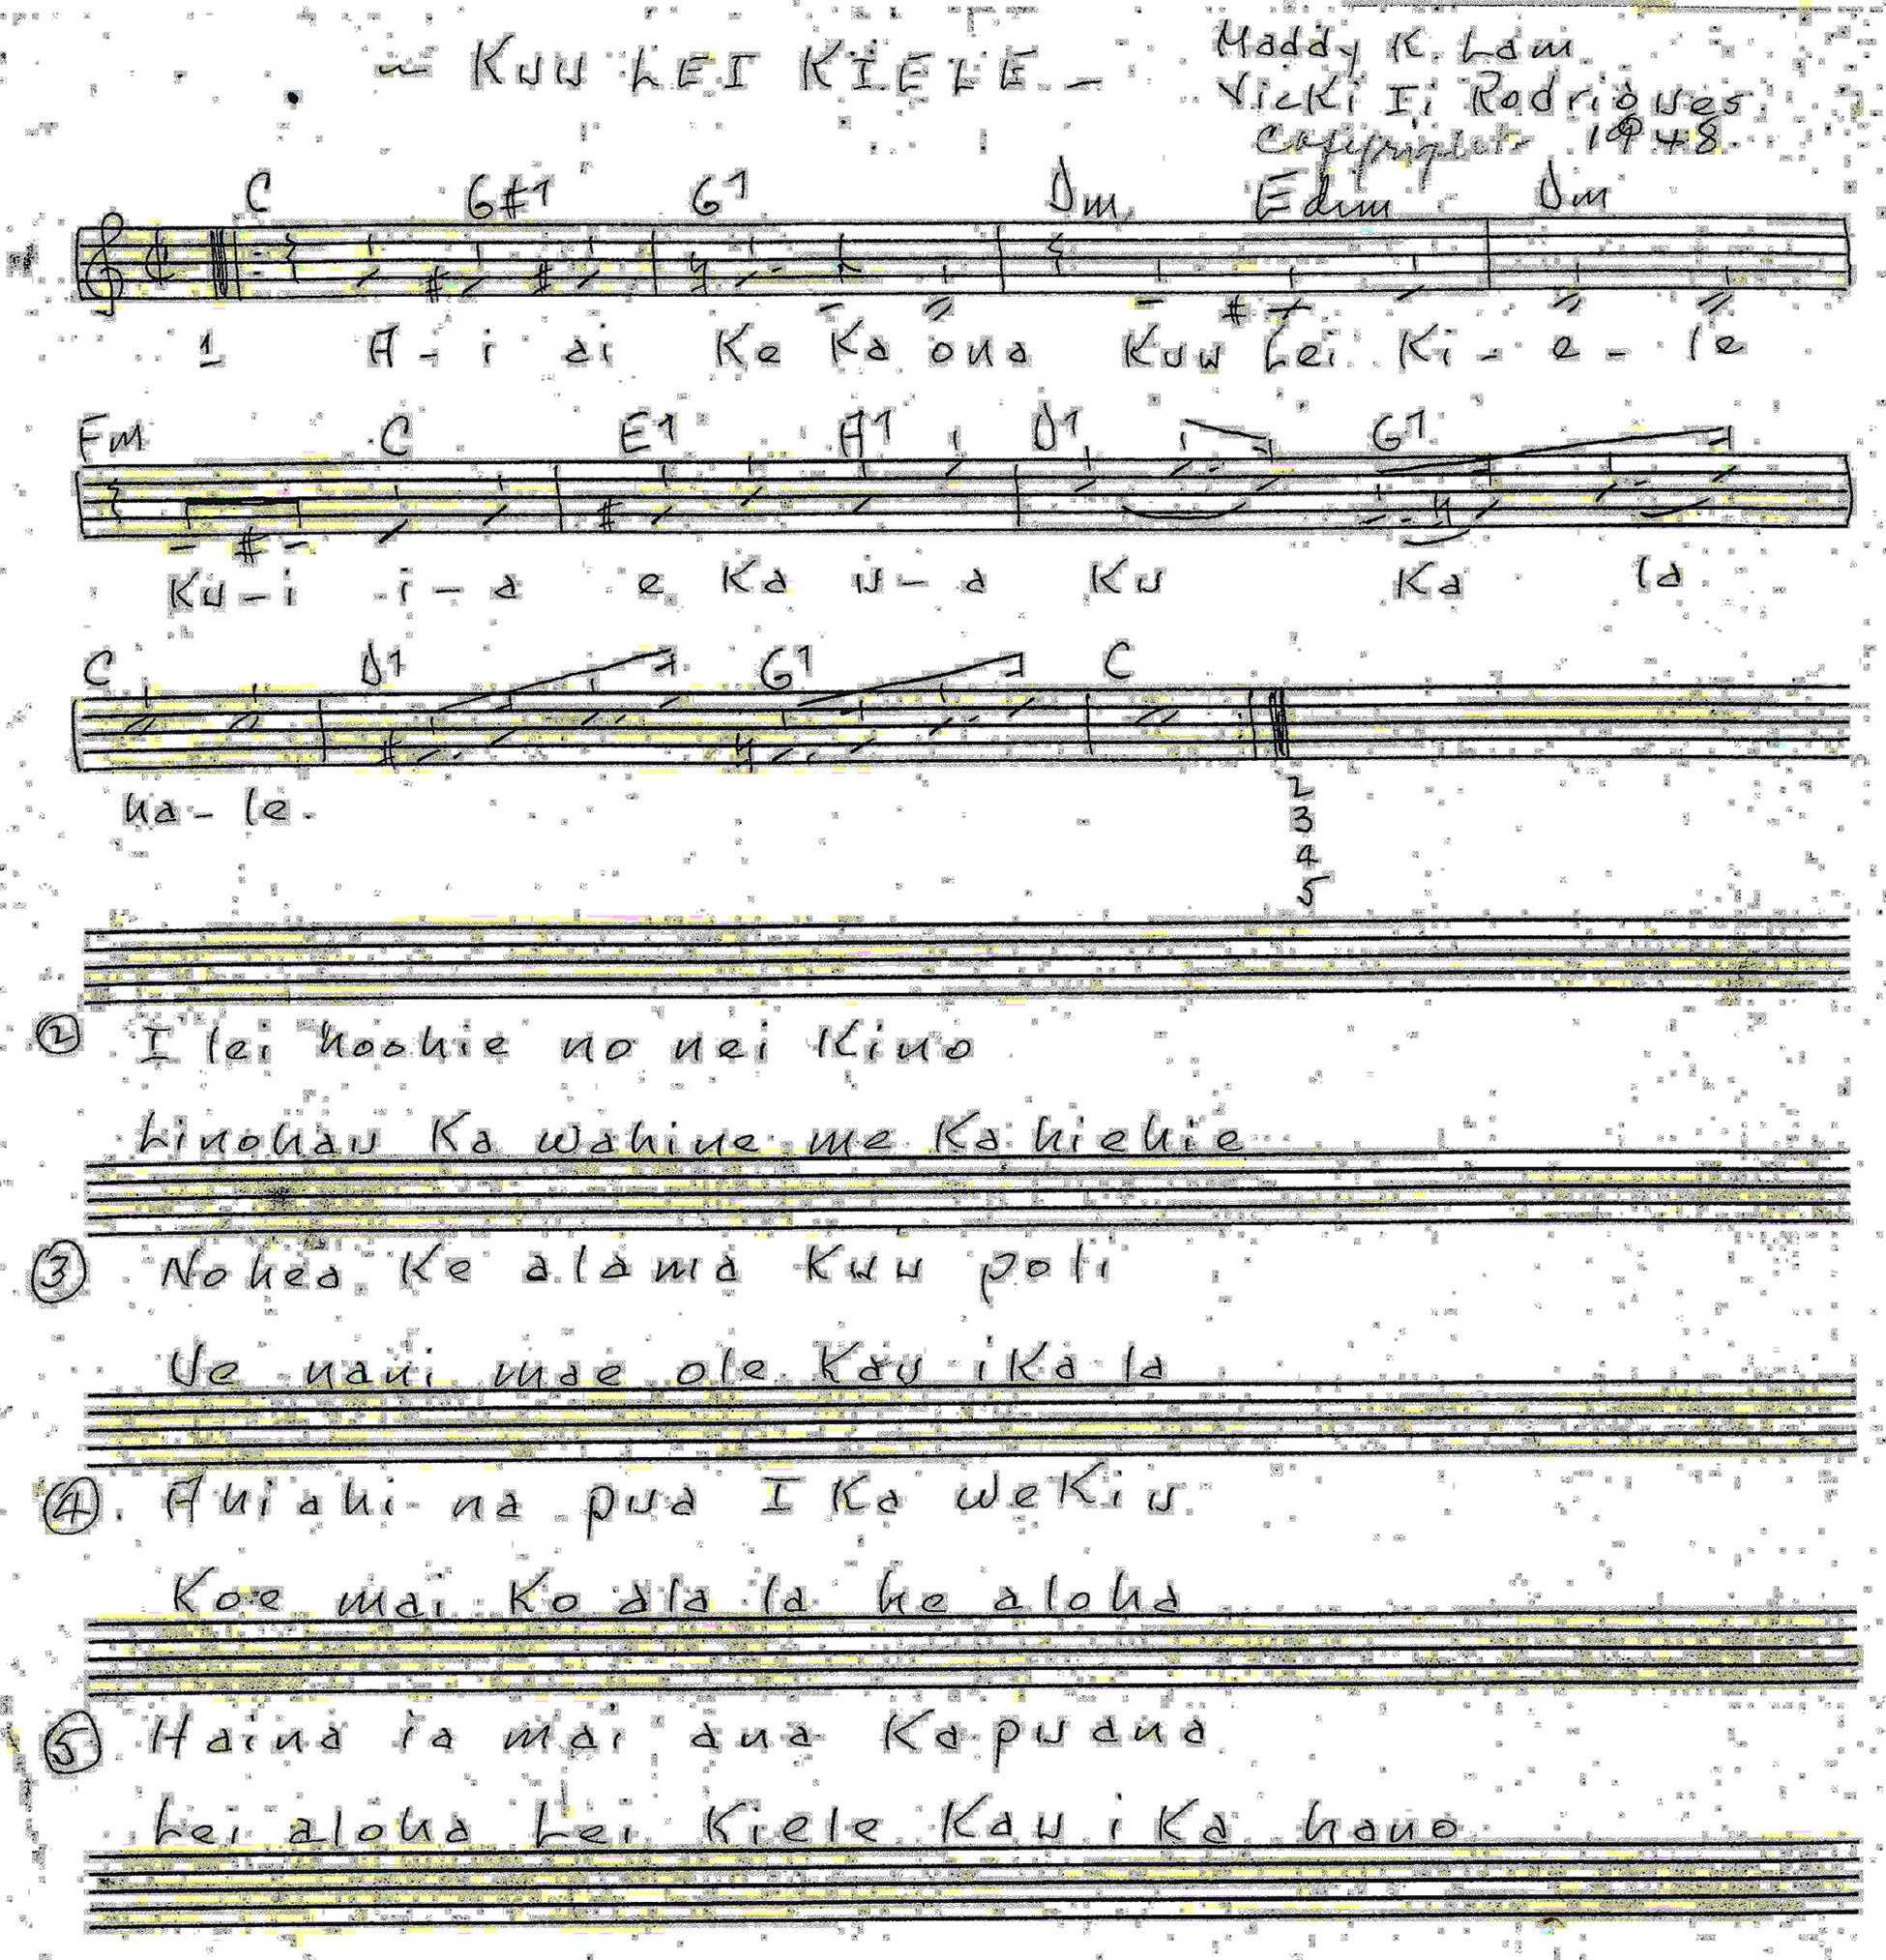 ~ KUU LEI KIELE -
Maddy K. Lam
Vicki Ii Rodrigues
Copyright 1948
C G#7 G7 Dm Edim Dm
1 A-i ai Ke Ka ona Kuu Lei Ki-e-le
Fm C E7 A7 D7 G7
Ku-i i-a e Ka u-a Ku Ka la
C D7 G7 C
ha-le.
2
3
4
5
② I lei hoohie no nei Kino
Linohau Ka wahine me Ka hiehie
③ Nohea Ke alama Kuu poli
Ue nani mae ole Kau iKa la
④. Ahiahi na pua I Ka weKiu
Koe mai Ko ala la he aloha
⑤ Haina ia mai ana Kapuana
Lei aloha Lei Kiele Kau iKa hano